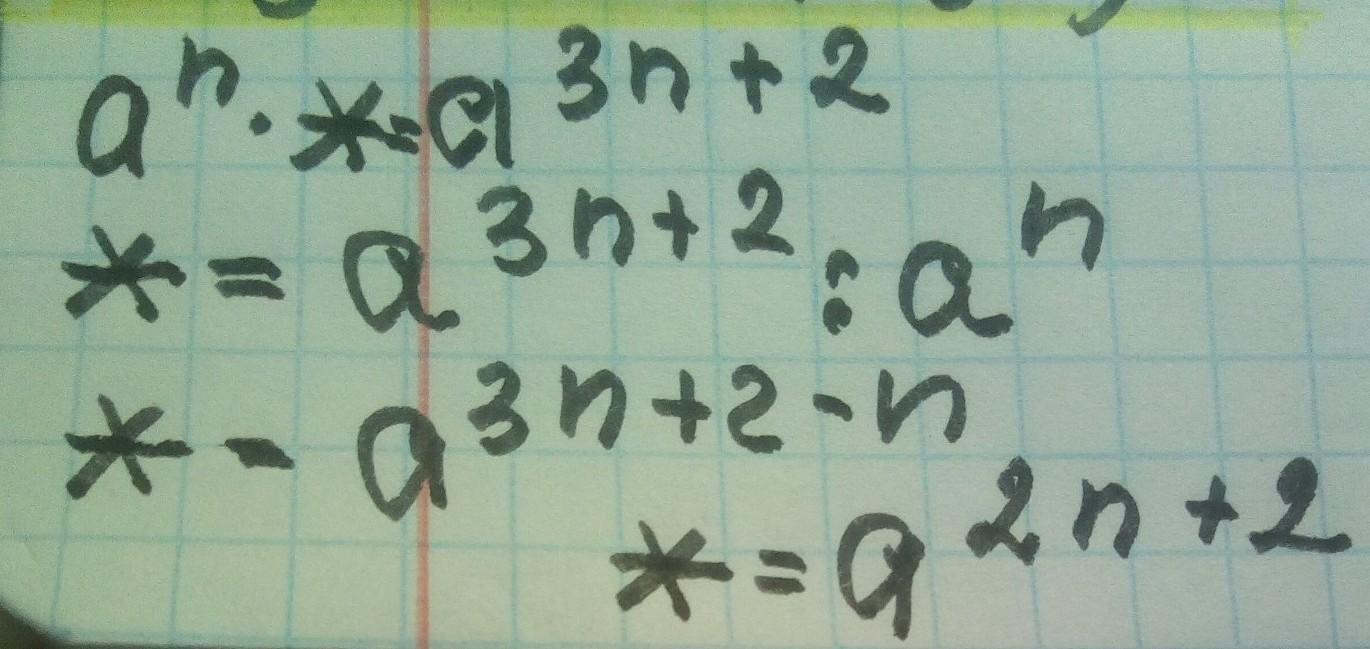 aⁿ · * = a³ⁿ⁺²
* = a³ⁿ⁺² : aⁿ
* - a³ⁿ⁺²⁻ⁿ
* = a²ⁿ⁺²